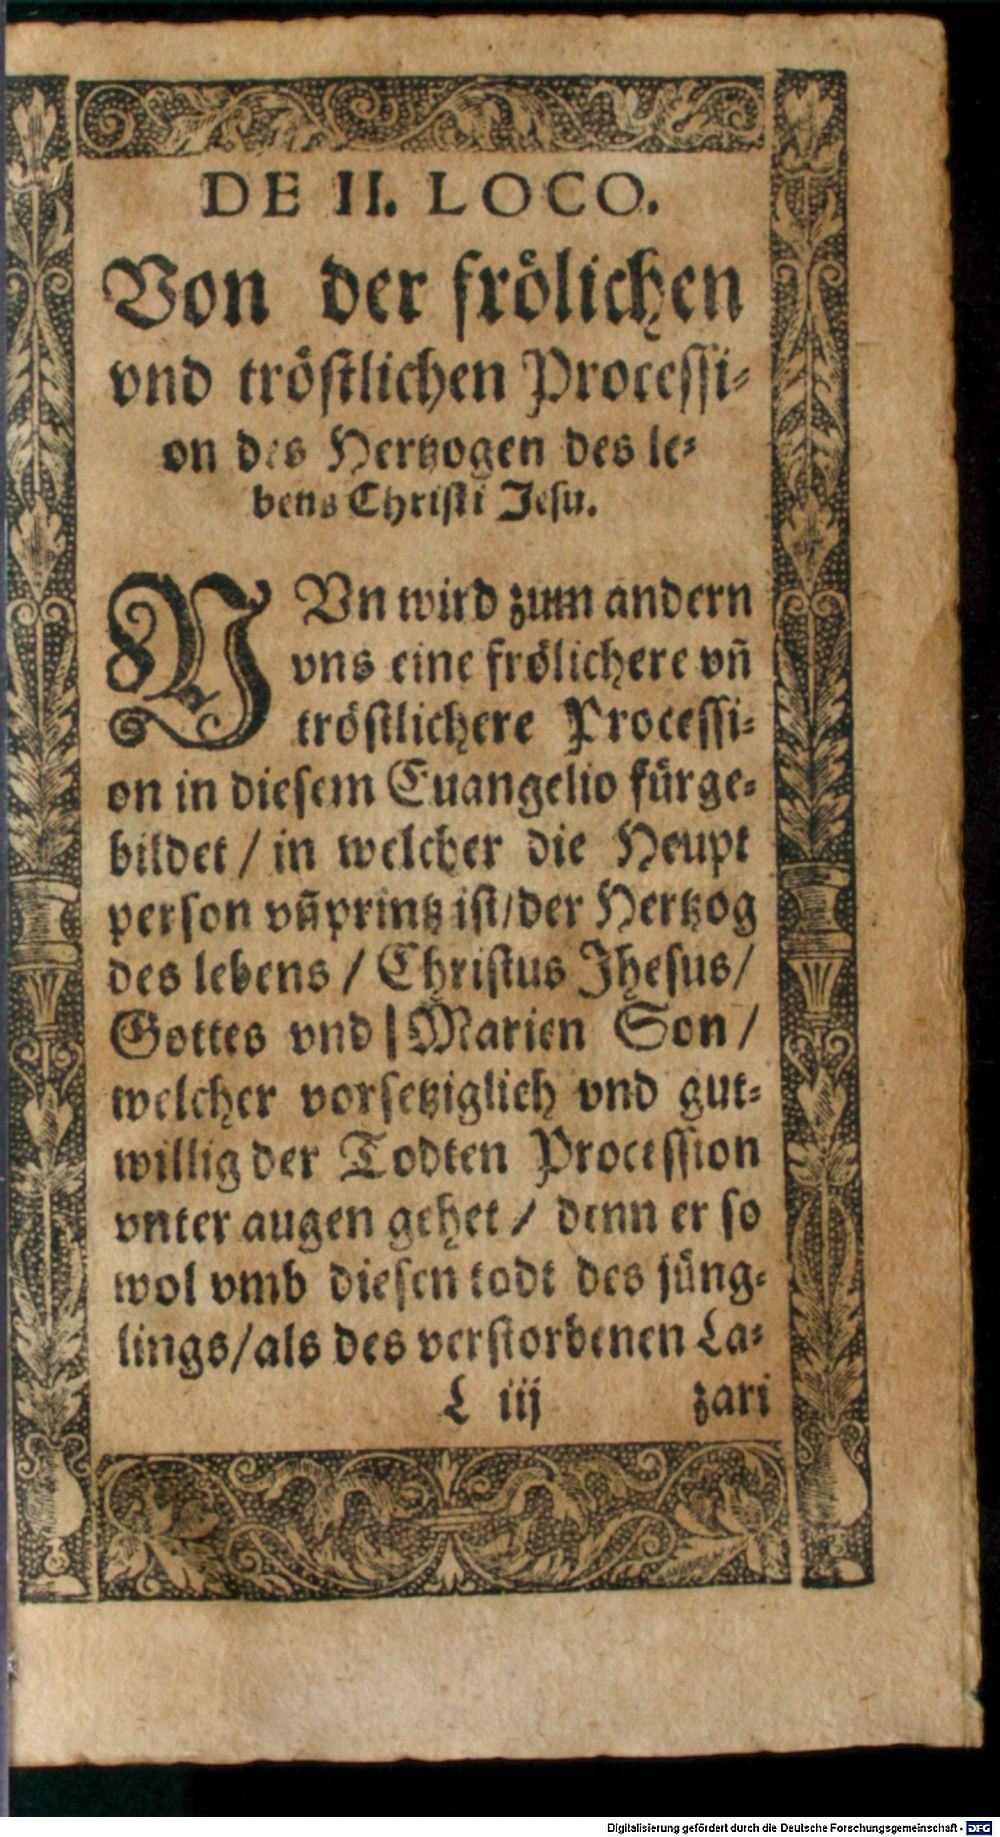 DE II. LOCO.
Von der frölichen
vnd tröstlichen Processi-
on des Hertzogen des le-
bens Christi Jesu.
NVn wird zum andern
vns eine frölichere vñ
tröstlichere Processi-
on in diesem Euangelio fürge-
bildet / in welcher die Heupt
person vñ printz ist / der Hertzog
des lebens / Christus Jhesus /
Gottes vnd Marien Son /
welcher vorsetziglich vnd gut-
willig der Todten Procession
vnter augen gehet / denn er so
wol vmb diesen todt des jüng-
lings / als des verstorbenen La-
L iij zari
Digitalisierung gefördert durch die Deutsche Forschungsgemeinschaft - DFG